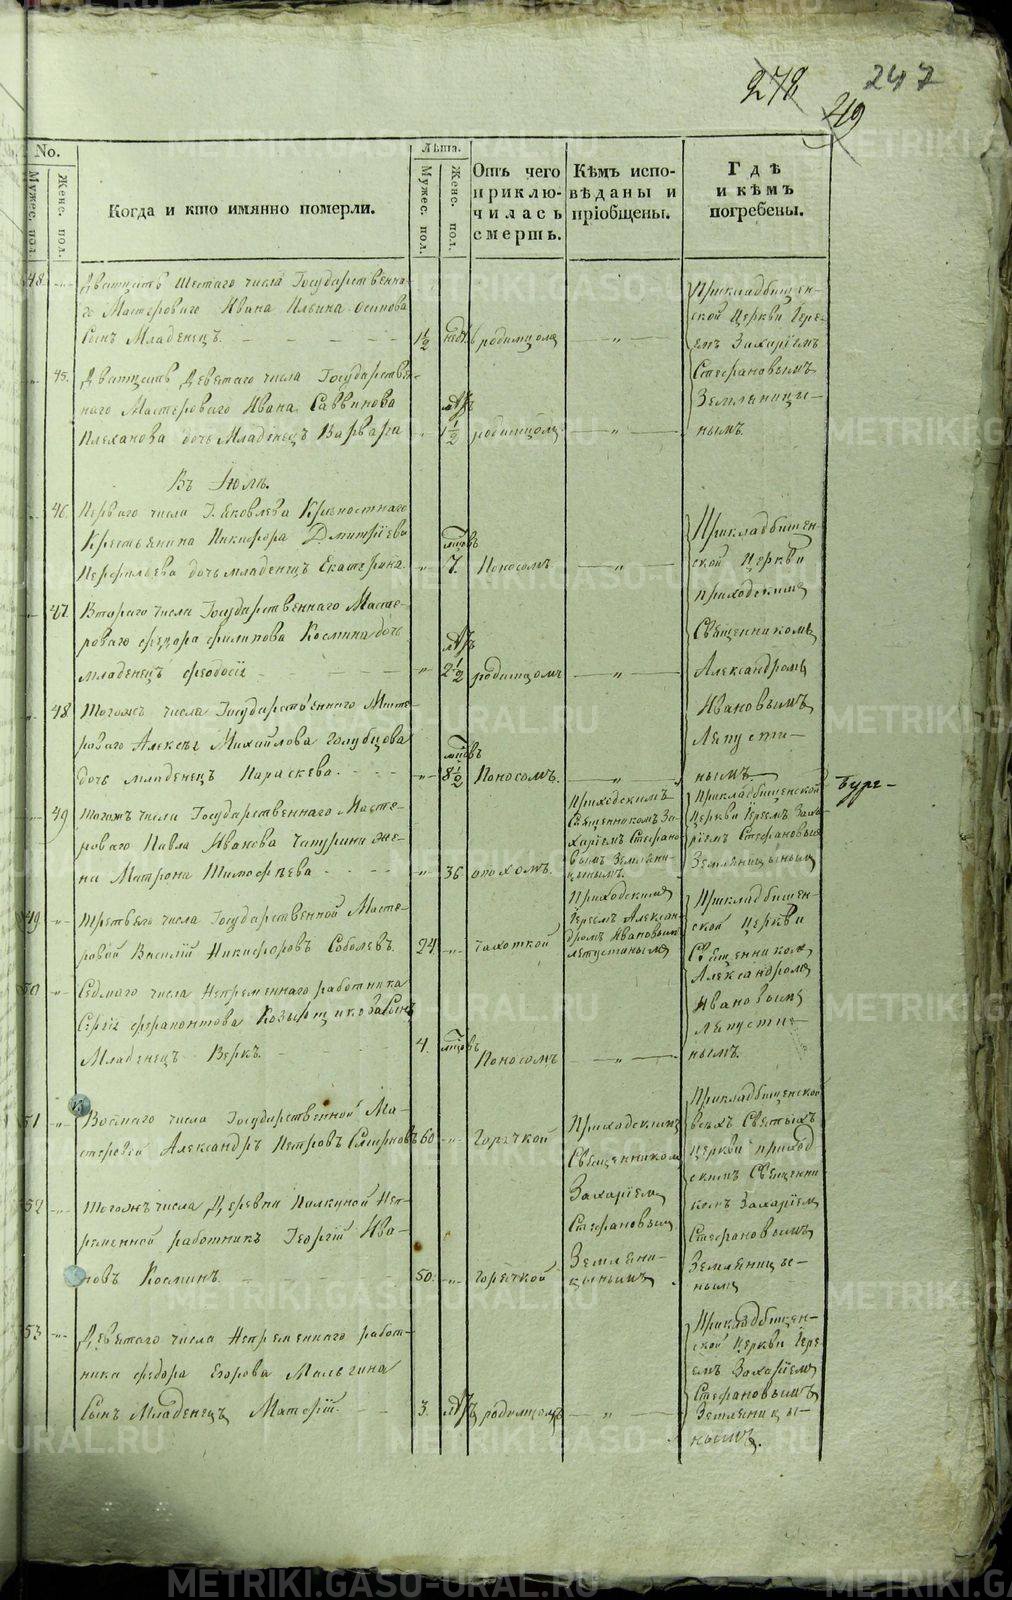 278
247
249
No.
Мужес. пол.
Женс. пол.
Когда и кто имянно померли.
Лѣта.
Мужес. пол.
Женс. пол.
Отъ чего приключилась смерть.
Кѣмъ исповѣданы и пріобщены.
Гдѣ и кѣмъ погребены.
48. Дватцать шестаго числа Государственна-
го Мастероваго Ивана Ильина Осипова
Сынъ Младенецъ. 1½ родимцомъ
Прикладбищен-
ской Церкви Іере-
емъ Захаріемъ
Стефановымъ
Земляницы-
нымъ.
45. Дватцать Девятаго числа Государствен-
наго Мастероваго Ивана Саввинова
Плеханова дочь Младенецъ Варвара 1½ родимцомъ
Въ Іюлѣ.
46. Перваго числа Г. Яковлева Крѣпостнаго
Крестьянина Никифора Дмитріева
Перфильева дочь младенецъ Екатерина 7. Поносомъ
Прикладбищен-
ской Церкви
приходскимъ
Священникомъ
Александромъ
Ивановымъ
Ляпусти-
нымъ.
47. Втораго числа Государственнаго Масте-
роваго Федора Филипова Космина дочь
младенецъ Феодосія 2½ родимцомъ
48. Тогожъ числа Государственнаго Масте-
роваго Алексѣя Михайлова Голубцова
дочь младенецъ Параскева. 8½ Поносомъ.
49 Тогожъ числа Государственнаго Масте-
роваго Павла Иванова Чапурина же-
на Матрона Тимофѣева 36 опохомъ.
Приходскимъ
Священникомъ За-
харіемъ Стефано-
вымъ Земляни-
цынымъ.
Прикладбищенской
Церкви Іереемъ Заха-
ріемъ Стефановымъ
Земляницынымъ
49 Третьяго числа Государственной Масте-
ровой Василій Никифоровъ Соболевъ. 24. чахоткой
Приходскимъ
Іереемъ Алексан-
дромъ Ивановымъ
Ляпустинымъ
Прикладбищен-
ской Церкви
Священникомъ
Александромъ
Ивановымъ
Ляпусти-
нымъ.
50 Седмаго числа Непременнаго работника
Ферапонтова Козырщикова Сынъ
Младенецъ 4. Поносомъ
51 Восмаго числа Государственной Ма-
стеровой Александръ Петровъ Смирновъ 60 Горячкой
Приходскимъ
Священникомъ
Захаріемъ
Стефановымъ
Земляни-
цынымъ
Прикладбищенской
всѣхъ Святыхъ
Церкви приход-
скимъ Священни-
комъ Захаріемъ
Стефановымъ
Земляницы-
нымъ
52 Тогожъ числа Деревни Палкиной Неп-
ременной работникъ Георгій Ива-
новъ Косминъ. 50. горячкой
53 Девятаго числа Непременнаго работ-
ника Федора Егорова Мальгина
Сынъ Младенецъ 3. родимцомъ
Прикладбищен-
ской Церкви Іере-
емъ Захаріемъ
Стефановымъ
Земляницы-
нымъ.
METRIKI.GASO-URAL.RU